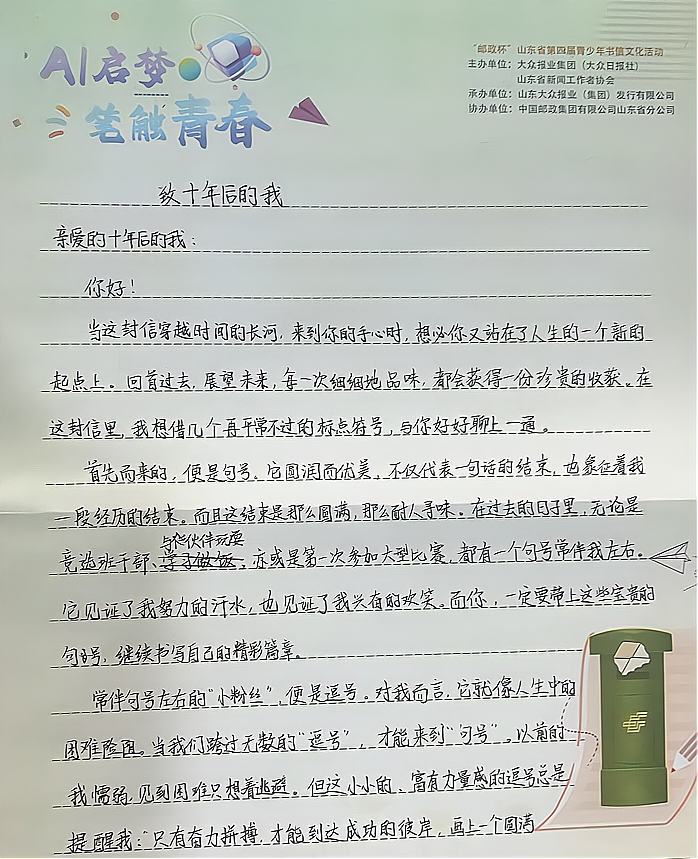 AI启梦
笔触青春
"邮政杯"山东省第四届青少年书信文化活动
主办单位：大众报业集团（大众日报社）
山东省新闻工作者协会
承办单位：山东大众报业（集团）发行有限公司
协办单位：中国邮政集团有限公司山东省分公司
致十年后的我
亲爱的十年后的我：
你好！
当这封信穿越时间的长河，来到你的手心时，想必你又站在了人生的一个新的
起点上。回首过去，展望未来，每一次细细地品味，都会获得一份珍贵的收获。在
这封信里，我想借几个再平常不过的标点符号，与你好好聊上一通。
首先而来的，便是句号。它圆润而优美，不仅代表一句话的结束，也象征着我
一段经历的结束。而且这结束是那么圆满，那么耐人寻味。在过去的日子里，无论是
与伙伴玩耍
竞选班干部、学习做饭，亦或是第一次参加大型比赛，都有一个句号常伴我左右。
它见证了我努力的汗水，也见证了我共有的欢笑。而你，一定要带上这些宝贵的
句号，继续书写自己的精彩篇章。
常伴句号左右的"小粉丝"，便是逗号。对我而言，它就像人生中的
困难险阻。当我们跨过无数的"逗号"，才能来到"句号"。以前的
我懦弱，见到困难只想着逃避。但这小小的、富有力量感的逗号总是
提醒我："只有奋力拼搏，才能到达成功的彼岸，画上一个圆满